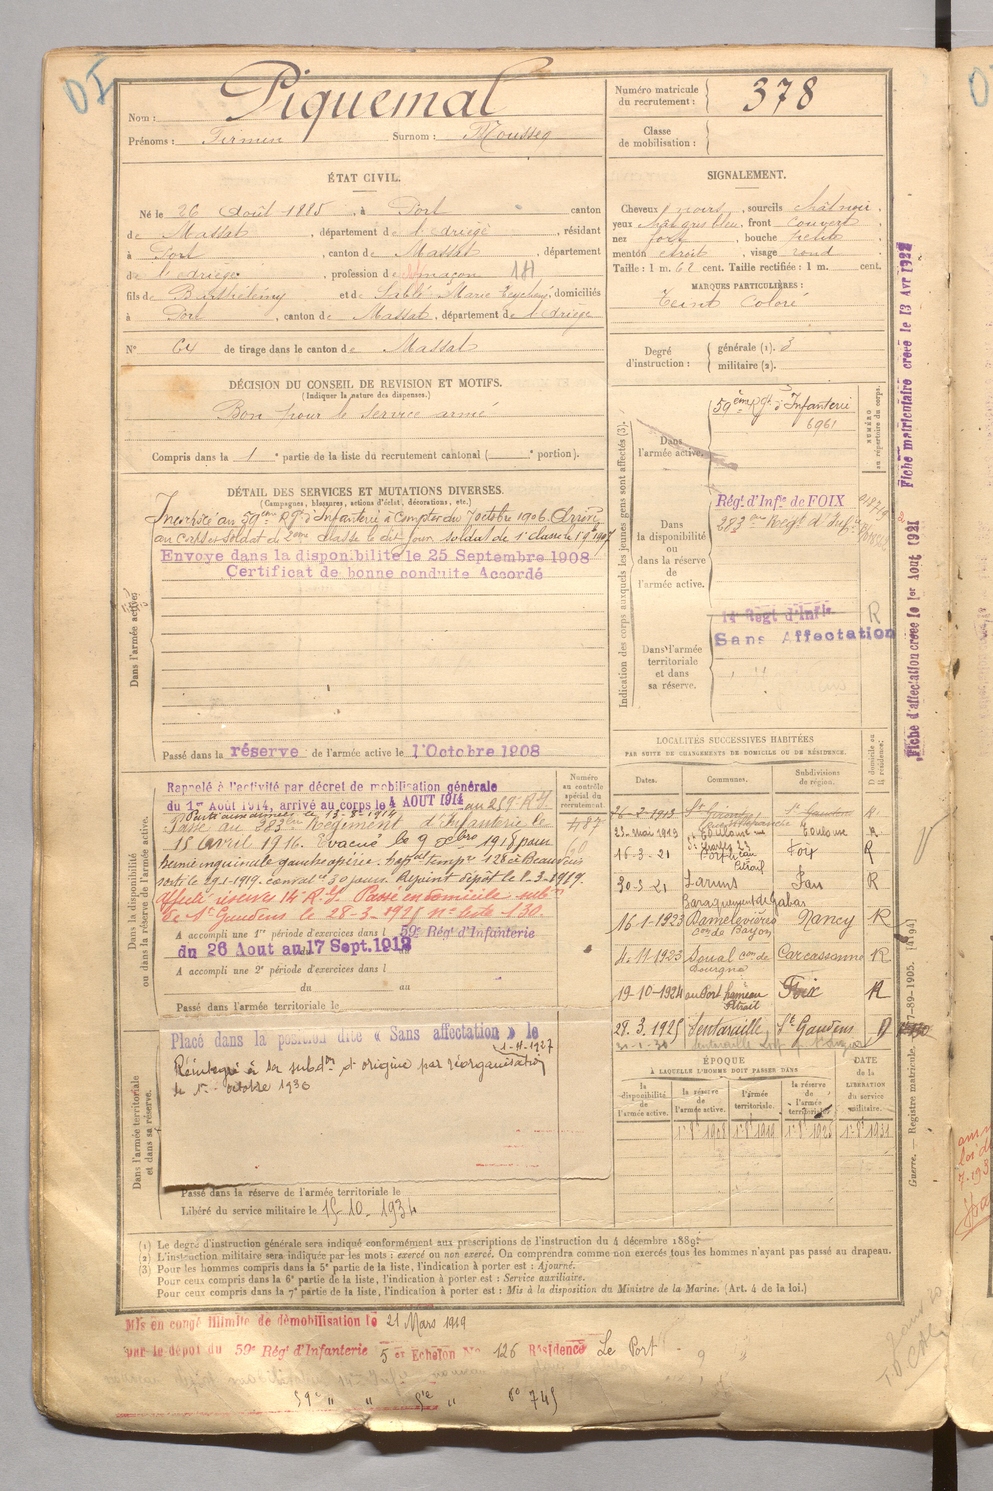 Nom : Piquemal
Prénoms : Firmin Surnom : Mousseq
Numéro matricule du recrutement : 378
Classe de mobilisation :
ÉTAT CIVIL.
Né le 26 Août 1885, à Port canton
de Massat, département de l'Ariège, résidant
à Port, canton de Massat, département
de l'Ariège, profession de maçon 181
fils de Barthélémy et de Sablé Marie Teychené, domiciliés
à Port, canton de Massat, département de l'Ariège
N° 64 de tirage dans le canton de Massat
SIGNALEMENT.
Cheveux noirs, sourcils châtain
yeux gris bleu, front couvert
nez fort, bouche petite
menton étroit, visage rond
Taille : 1 m. 62 cent. Taille rectifiée : 1 m. cent.
MARQUES PARTICULIÈRES :
Teint coloré
Degré d'instruction : générale (1). 3
militaire (2).
DÉCISION DU CONSEIL DE REVISION ET MOTIFS.
(Indiquer la nature des dispenses.)
Bon pour le service armé
Compris dans la 1re partie de la liste du recrutement cantonal ( e portion).
DÉTAIL DES SERVICES ET MUTATIONS DIVERSES.
(Campagnes, blessures, actions d'éclat, décorations, etc.)
Dans l'armée active.
Incorporé au 59ème Rgt d'Infanterie à compter du 7 octobre 1906. Arrivé
au corps et soldat de 2ème classe le dit jour, soldat de 1e classe le
Envoyé dans la disponibilité le 25 Septembre 1908
Certificat de bonne conduite Accordé
Passé dans la réserve de l'armée active le 1 Octobre 1908
Indication des corps auxquels les jeunes gens sont affectés (3).
NUMÉRO au répertoire du corps.
Dans l'armée active.
59ème Rgt d'Infanterie
6961
Dans la disponibilité ou dans la réserve de l'armée active.
Régt d'Infie de FOIX
283ème Régt d'Infie
Dans l'armée territoriale et dans sa réserve.
14e Régt d'Infie
R
Sans Affectation
Dans la disponibilité ou dans la réserve de l'armée active.
Numéro au contrôle spécial du recrutement.
487
Rappelé à l'activité par décret de mobilisation générale
du 1er Août 1914, arrivé au corps le 4 AOUT 1914 au 259e R.I.
Parti aux armées le 13-8-1914
Passé au 283ème Régiment d'Infanterie le
15 avril 1916. Evacué le 9 1918 pour
hernie inguinale gauche opérée. hopital tempre 128 à Beauvais
sorti le 29-1-1919. convalce 30 jours. Rejoint dépôt le 2-3-1919.
Affecté réserves 14 R.I. Passé en domicile subon
de St Gaudens le 28-3-1925 n° liste 130.
A accompli une 1re période d'exercices dans l 59e Régt d'Infanterie
du 26 Aout au 17 Sept. 1912
A accompli une 2e période d'exercices dans l
du au
Passé dans l'armée territoriale le
Dans l'armée territoriale et dans sa réserve.
Placé dans la position dite « Sans affectation » le
1-11-1927
Réintégré à la subdon d'origine par réorganisation
le 1er octobre 1930
Passé dans la réserve de l'armée territoriale le
Libéré du service militaire le 15-10-1934
LOCALITÉS SUCCESSIVES HABITÉES
PAR SUITE DE CHANGEMENTS DE DOMICILE OU DE RÉSIDENCE.
Dates. Communes. Subdivisions de région. D domicile ou R résidence.
26-2-1913 St Girons St Gaudens R
23-mai 1913 Toulouse Toulouse R
16-3-21 Port hameau Etrail Foix R
30-3-21 Laruns Baraquement de Gabas Pau R
16-1-1923 Damelevières con de Bayon Nancy R
4-11-1923 Soual con de Dourgne Carcassonne R
19-10-1924 au Port hameau Etrait Foix R
28.3.1925 Sentaraille St Gaudens D
ÉPOQUE
À LAQUELLE L'HOMME DOIT PASSER DANS
DATE de la LIBÉRATION du service militaire.
la disponibilité de l'armée active. la réserve de l'armée active. l'armée territoriale. la réserve de l'armée territoriale.
1er 8bre 1908 1er 8bre 1919 1er 8bre 1925 1er 8bre 1931
(1) Le degré d'instruction générale sera indiqué conformément aux prescriptions de l'instruction du 4 décembre 1889.
(2) L'instruction militaire sera indiquée par les mots : exercé ou non exercé. On comprendra comme non exercés tous les hommes n'ayant pas passé au drapeau.
(3) Pour les hommes compris dans la 5e partie de la liste, l'indication à porter est : Ajourné.
Pour ceux compris dans la 6e partie de la liste, l'indication à porter est : Service auxiliaire.
Pour ceux compris dans la 7e partie de la liste, l'indication à porter est : Mis à la disposition du Ministre de la Marine. (Art. 4 de la loi.)
Mis en congé illimité de démobilisation le 21 Mars 1919
par le dépôt du 59e Régt d'Infanterie 5 er Echelon No 126 Résidence Le Port
59e " " 5e " no 745
Fiche matriculaire créée le 13 Avr 1922
Fiche d'affectation créée le 1er Aout 1921
Guerre. — Registre matricule. 37-89-1905. [4194]